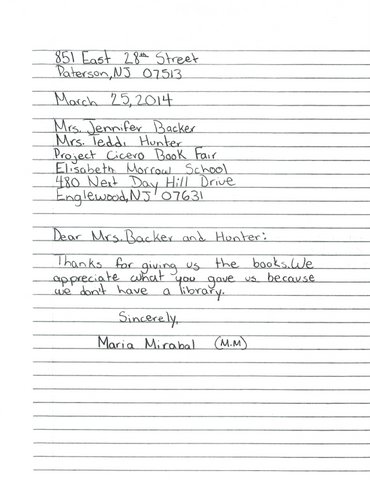 851 East 28th Street
Paterson, NJ 07513
March 25, 2014
Mrs. Jennifer Backer
Mrs. Teddi Hunter
Project Cicero Book Fair
Elisabeth Morrow School
480 Next Day Hill Drive
Englewood, NJ 07631
Dear Mrs. Backer and Hunter:
Thanks for giving us the books. We
appreciate what you gave us because
we don't have a library.
Sincerely,
Maria Mirabal (M.M)